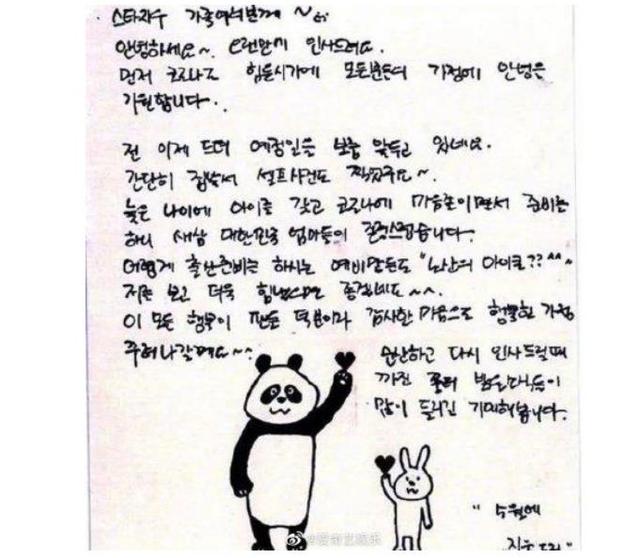 스타지우 가족여러분께 ~
안녕하세요~. 오랜만에 인사드려요.
먼저 코로나로 힘든시기에 모든분들의 가정에 안녕을
기원합니다.
전 이제 드뎌 예정일을 보름 앞두고 있네요.
간단히 집에서 셀프사진도 찍었구요~.
늦은 나이에 아이를 갖고 코로나에 마음졸이면서 준비를
하니 새삼 대한민국 엄마들이 존경스럽습니다.
어렵게 출산준비를 하시는 예비맘들도 "노산의 아이콘?? ^^~
저를 보고 더욱 힘내시면 좋겠네요~~.
이 모든 행복이 팬들 덕분이라 감사한 마음으로 행복한 가정
꾸려나갈께요~~
순산하고 다시 인사드릴때
까진 꽃이 밝은
많이 들리길 기대해봅니다.
" 수원에
지우